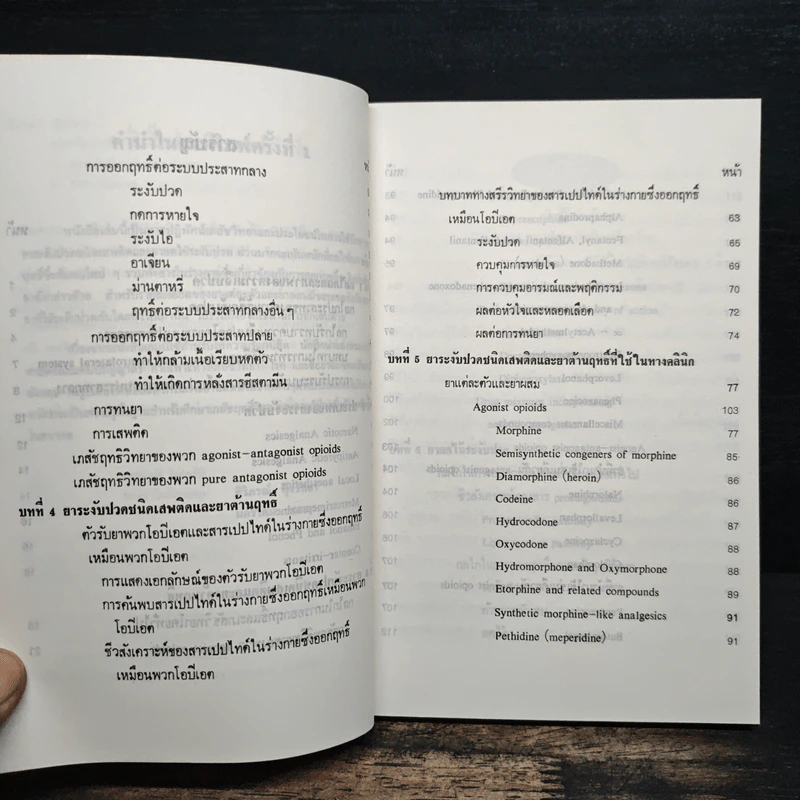 การออกฤทธิ์ต่อระบบประสาทกลาง
ระงับปวด
กดการหายใจ
ระงับไอ
อาเจียน
ม่านตาหรี่
ฤทธิ์ต่อระบบประสาทกลางอื่น ๆ
การออกฤทธิ์ต่อระบบประสาทปลาย
ทำให้กล้ามเนื้อเรียบหดตัว
ทำให้เกิดการหลั่งสารฮีสตามีน
การทนยา
การเสพติด
เภสัชฤทธิวิทยาของพวก agonist-antagonist opioids
เภสัชฤทธิวิทยาของพวก pure antagonist opioids
บทที่ 4 ยาระงับปวดชนิดเสพติดและยาต้านฤทธิ์
ตัวรับยาพวกโอปิเอตและสารเปปไทด์ในร่างกายซึ่งออกฤทธิ์
เหมือนพวกโอปิเอต
การแสดงเอกลักษณ์ของตัวรับยาพวกโอปิเอต
การค้นพบสารเปปไทด์ในร่างกายซึ่งออกฤทธิ์เหมือนพวก
โอปิเอต
ชีวสังเคราะห์ของสารเปปไทด์ในร่างกายซึ่งออกฤทธิ์
เหมือนพวกโอปิเอต
หน้า
บทบาททางสรีรวิทยาของสารเปปไทด์ในร่างกายซึ่งออกฤทธิ์
เหมือนโอปิเอต 63
ระงับปวด 65
ควบคุมการหายใจ 69
การควบคุมอารมณ์และพฤติกรรม 70
ผลต่อหัวใจและหลอดเลือด 72
ผลต่อการทนยา 74
บทที่ 5 ยาระงับปวดชนิดเสพติดและยาต้านฤทธิ์ที่ใช้ในทางคลินิก
ยาแต่ละตัวและยาผสม 77
Agonist opioids 103
Morphine 77
Semisynthetic congeners of morphine 85
Diamorphine (heroin) 86
Codeine 86
Hydrocodone 87
Oxycodone 88
Hydromorphone and Oxymorphone 88
Etorphine and related compounds 89
Synthetic morphine-like analgesics 91
Pethidine (meperidine) 91